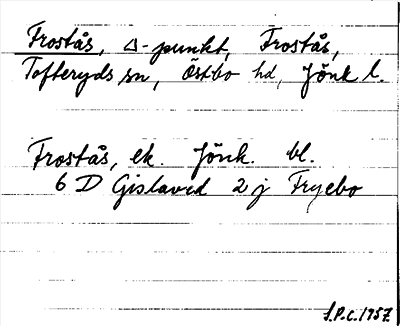 Frostås, △-punkt, Frostås,
Tofteryds sn, Östbo hd, Jönk l.
Frostås, ek. Jönk. bl.
6 D Gislaved 2 j Fryebo
S.P.C. 1957